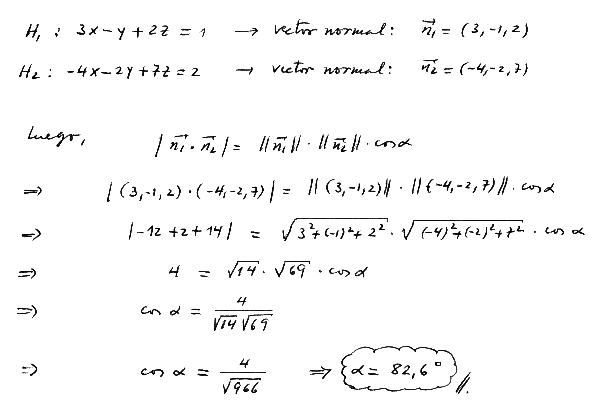 H₁ : 3x-y+2z = 1 → vector normal: n₁⃗ = (3,-1,2)
H₂ : -4x-2y+7z = 2 → vector normal: n₂⃗ = (-4,-2,7)
Luego, |n₁⃗ · n₂⃗| = ||n₁⃗|| · ||n₂⃗|| · cos α
⇒ |(3,-1,2)·(-4,-2,7)| = ||(3,-1,2)|| · ||(-4,-2,7)|| · cos α
⇒ |-12+2+14| = √(3²+(-1)²+2²) · √((-4)²+(-2)²+7²) · cos α
⇒ 4 = √14 · √69 · cos α
⇒ cos α = 4/(√14 √69)
⇒ cos α = 4/√966 ⇒ α = 82,6° //.